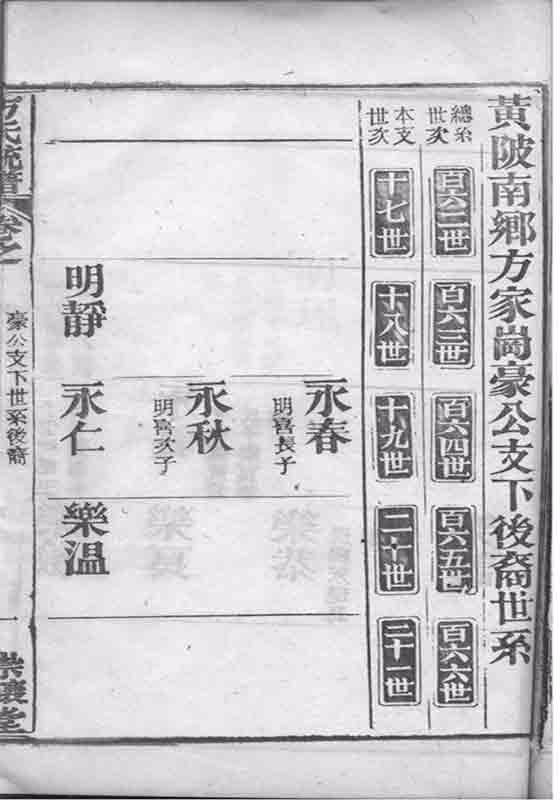 黃陂南鄉方家崗豪公支下後裔世系
總系世次
百六二世
百六三世
百六四世
百六五世
百六六世
本支世次
十七世
十八世
十九世
二十世
二十一世
永春
明喜長子
永秋
明喜次子
明靜
永仁
樂溫
方氏統譜
卷之一
豪公支下世系後裔
一